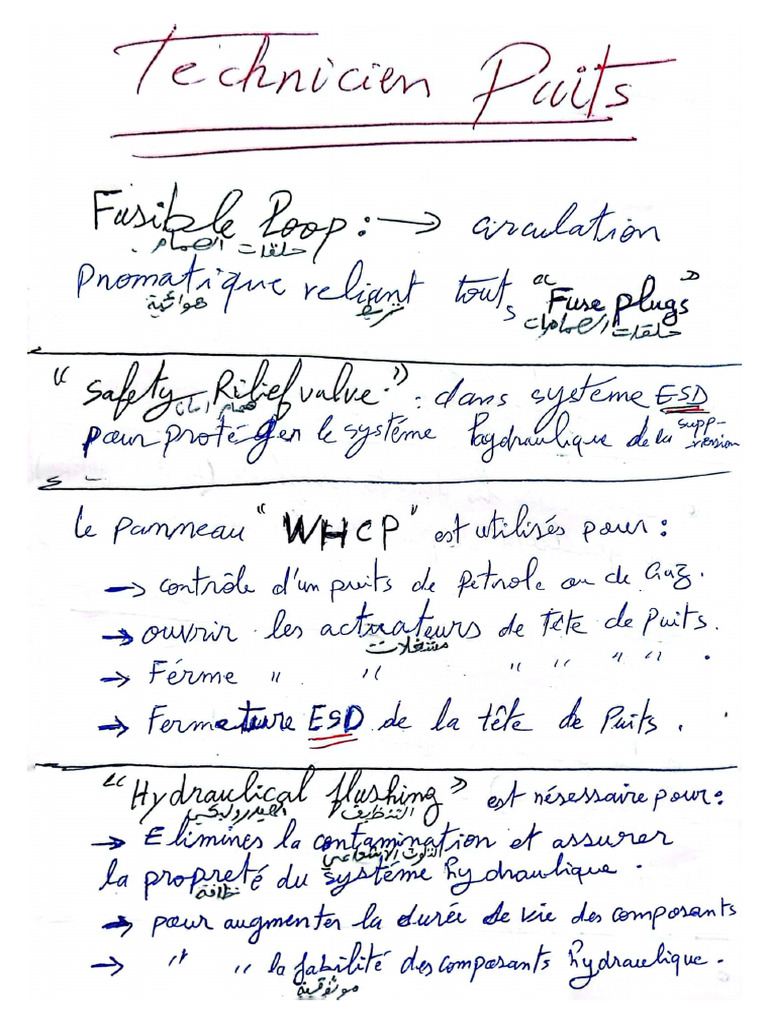 Technicien Puits
Fusible Loop : → circulation
حلقات الصمام
Pnomatique reliant touts "Fuse plugs"
هوائية تربط حلقات الصمامات
"Safety Rilief valve" : dans système ESD
صمام امان
pour protéger le systéme hydraulique de la supp-
ression
le panneau "WHCP" est utilisés pour :
→ contrôle d'un puits de Pétrole ou de Gaz.
→ ouvrir les actuateurs de tête de Puits.
مشغلات
→ Férme " " " " " " .
→ Fermeture ESD de la tête de Puits .
"Hydraulical flushing" est nésessaire pour :
الهيدروليكي التنظيف
→ Elimines la contamination et assurer
التلوث الاشعاعي
la propreté du systéme hydraulique .
نظافة
→ pour augmenter la durée de vie des composants
→ " " la fabilité des composants hydraulique .
موثوقية